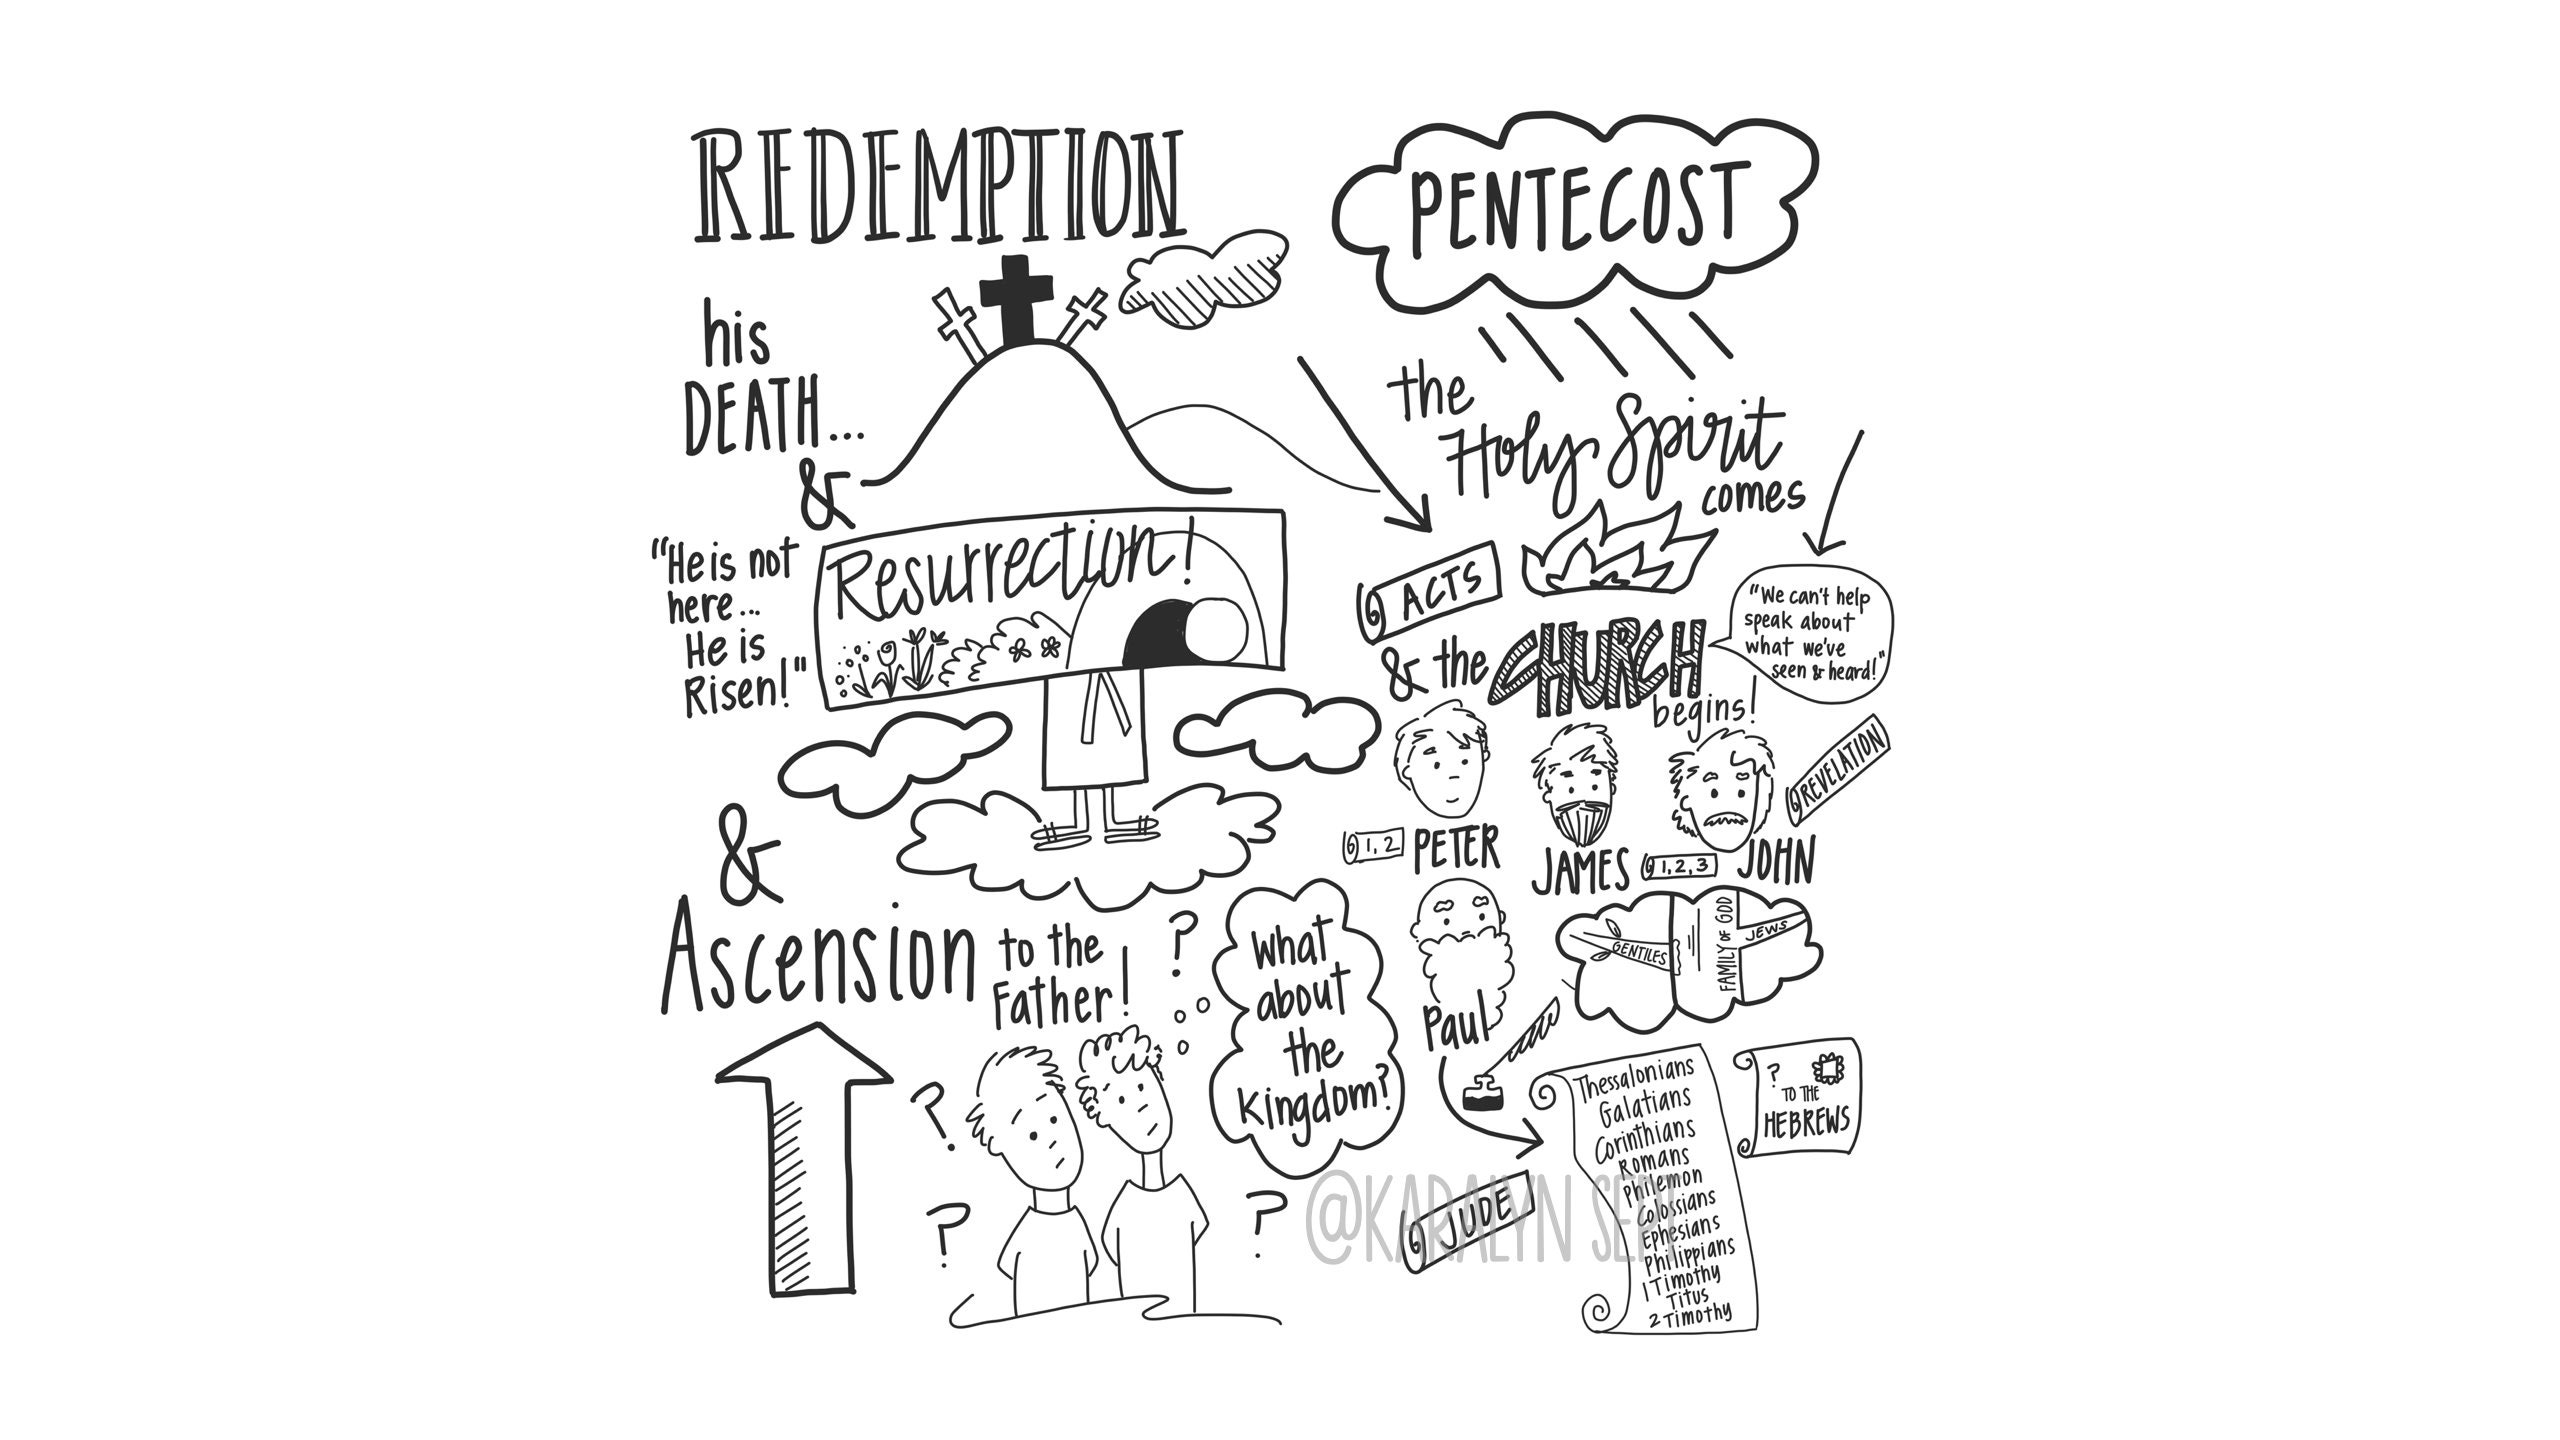 REDEMPTION
his
DEATH...
&
"He is not
here...
He is
Risen!"
Resurrection!
&
Ascension
to the
Father!
?
?
?
?
What
about
the
Kingdom?
PENTECOST
the
Holy Spirit
comes
ACTS
& the
CHURCH
begins!
"We can't help
speak about
what we've
seen & heard!"
1, 2
PETER
JAMES
1, 2, 3
JOHN
REVELATION
Paul
GENTILES
FAMILY OF GOD
JEWS
Thessalonians
Galatians
Corinthians
Romans
Philemon
Colossians
Ephesians
Philippians
1 Timothy
Titus
2 Timothy
?
TO THE
HEBREWS
JUDE
@KARALYN